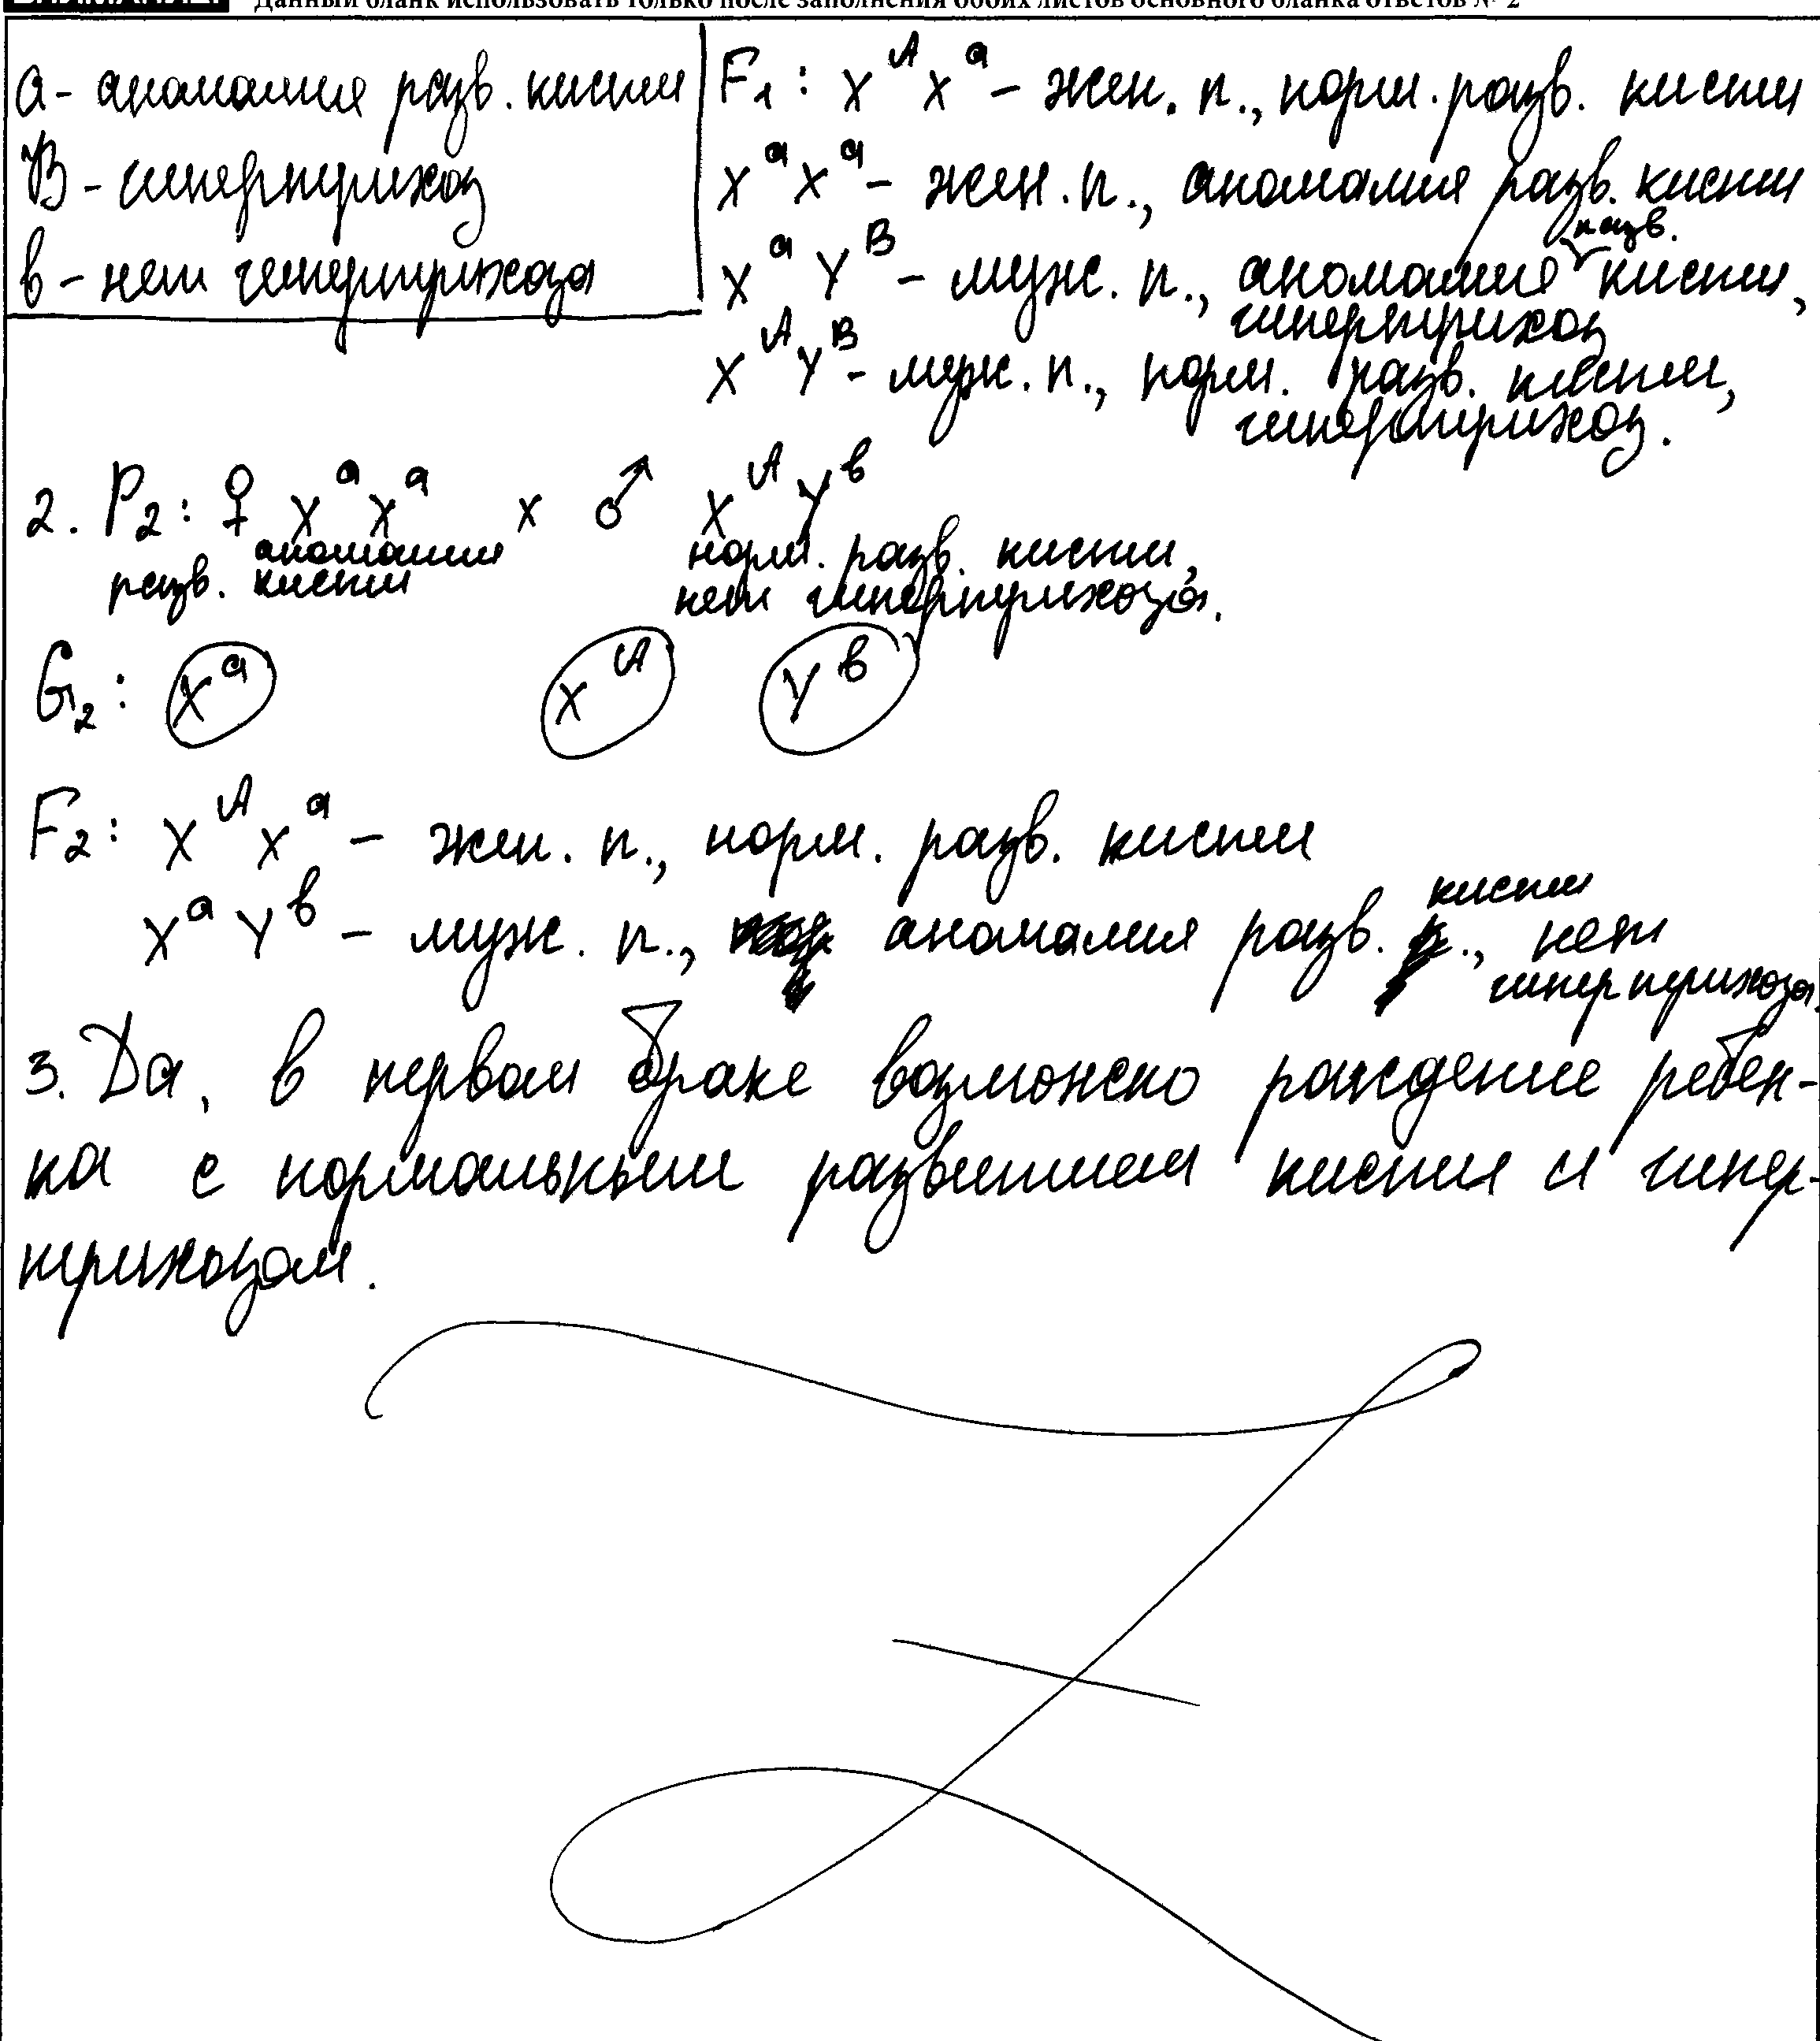 ВНИМАНИЕ! Данный бланк использовать только после заполнения обоих листов основного бланка ответов № 2
a - аномалия разв. кисти
B - гипертрихоз
b - нет гипертрихоза
F₁: XᴬXᵃ - жен. п., норм. разв. кисти
XᵃXᵃ - жен. п., аномалия разв. кисти
XᵃYᴮ - муж. п., аномалия разв. кисти,
гипертрихоз
XᴬYᴮ - муж. п., норм. разв. кисти,
гипертрихоз.
2. P₂: ♀ XᵃXᵃ x ♂ XᴬYᵇ
аномалия разв. кисти норм. разв. кисти,
нет гипертрихоза.
G₂: Xᵃ Xᴬ Yᵇ
F₂: XᴬXᵃ - жен. п., норм. разв. кисти
XᵃYᵇ - муж. п., аномалия разв. кисти, нет
гипертрихоза.
3. Да, в первом браке возможно рождение ребен-
ка с нормальным развитием кисти и гипер-
трихозом.